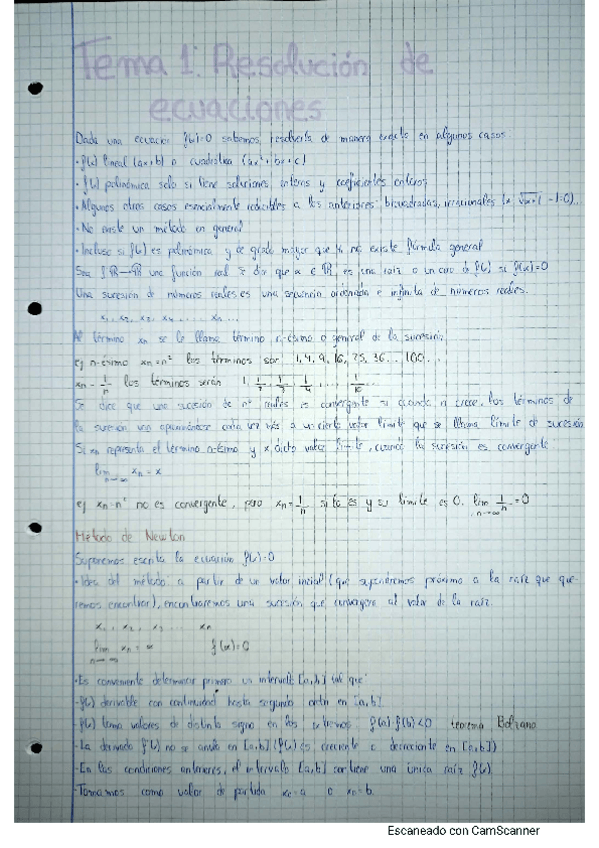 Tema 1: Resolución de
ecuaciones
Dada una ecuación f(x)=0 sabemos resolverla de manera exacta en algunos casos.
· f(x) lineal (ax+b) o cuadrática (ax²+bx+c)
· f(x) polinómica solo si tiene soluciones enteras y coeficientes enteros
· Algunos otros casos esencialmente reducibles a los anteriores: bicuadradas, irracionales
· No existe un método en general
· Incluso si f(x) es polinómica y de grado mayor que no existe fórmula general
Sea f: R→R una función real se dir que α ∈ R, es una raíz o un cero de f(x) si f(α)=0
Una sucesión de números reales es una secuencia ordenada e infinita de números reales.
x₁, x₂, x₃, x₄, ... xₙ ...
Al término xₙ se le llama término n-ésimo o general de la sucesión.
ej n-ésimo xₙ=n² los términos son 1, 4, 9, 16, 25, 36... 100...
xₙ = 1/n los términos serán 1,
Se dice que una sucesión de nº reales es convergente si cuando n crece, los términos de
la sucesión van aproximándose cada vez más a un cierto valor límite que se llama límite de sucesión
Si xₙ representa el término n-ésimo y x dicto valor límite, cuando la sucesión es convergente
lim xₙ = x
ej xₙ=n² no es convergente, pero xₙ=1/n si lo es y su límite es 0. lim n→∞ 1/n = 0
Método de Newton
Suponemos escrita la ecuación f(x)=0
· Idea del método: a partir de un valor inicial (que supondremos próximo a la raíz que que-
remos encontrar), encontraremos una sucesión que converge al valor de la raíz.
x₁, x₂, x₃ ... xₙ
lim n→∞ xₙ = α f(α)=0
· Es conveniente determinar primero un intervalo [a,b] tal que:
· f(x) derivable con continuidad hasta segundo orden en [a,b]
· f(x) toma valores de distinto signo en los extremos f(a)·f(b)<0 teorema Bolzano
· La derivada f'(x) no se anula en [a,b] (f(x) es creciente o decreciente en [a,b])
· En las condiciones anteriores, el intervalo [a,b] contiene una única raíz f(x)
· Tomamos como valor de partida x₀=a o x₀=b.
Escaneado con CamScanner